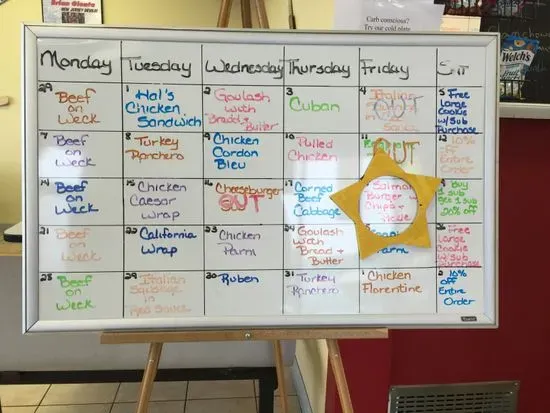 Brian Gionta
NEW JERSEY DEVILS
Carb conscious?
Welch's
Monday Tuesday Wednesday Thursday Friday
29
Beef
on
Weck
1
Hal's
Chicken
Sandwich
2
Goulash
with
Bread +
Butter
3
Cuban
4
Italian
OUT
5 Free
Large
Cookie
w/Sub
Purchase
7
Beef
on
Weck
8 Turkey
Ranchero
9 Chicken
Cordon
Bleu
10
Pulled
Chicken
11
OUT
12 10%
off
Entire
Order
14
Beef
on
Weck
15 Chicken
Caesar
wrap
16
Cheeseburger
OUT
17 Corned
Beef
Cabbage
Salmon
Burger w
Chips +
Pickle
buy
1 sub
get 1 sub
20% off
21
Beef
on
Weck
22 California
Wrap
23 Chicken
Parm
24 Goulash
with
Bread +
Butter
Parm
26 Free
Large
Cookie
w/Sub
Purchase
28 Beef
on
Weck
29 Italian
Sausage
in
Red Sauce
30
Ruben
31
Turkey
Ranchero
1 Chicken
Florentine
2 10%
off
Entire
Order